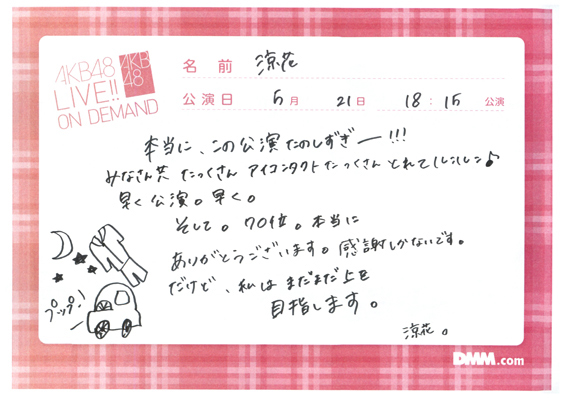 AKB48
LIVE!!
ON DEMAND
AKB
48
名前 涼花
公演日 5月 21日 18:15 公演
本当に、この公演たのしすぎー!!!
みなさん共 たっくさん アイコンタクト たっくさん とれてルンルン♪
早く公演。早く。
そして。70位。本当に
ありがとうございます。感謝しかないです。
だけど、私は まだまだ上を
目指します。
涼花。
プップ!
DMM.com